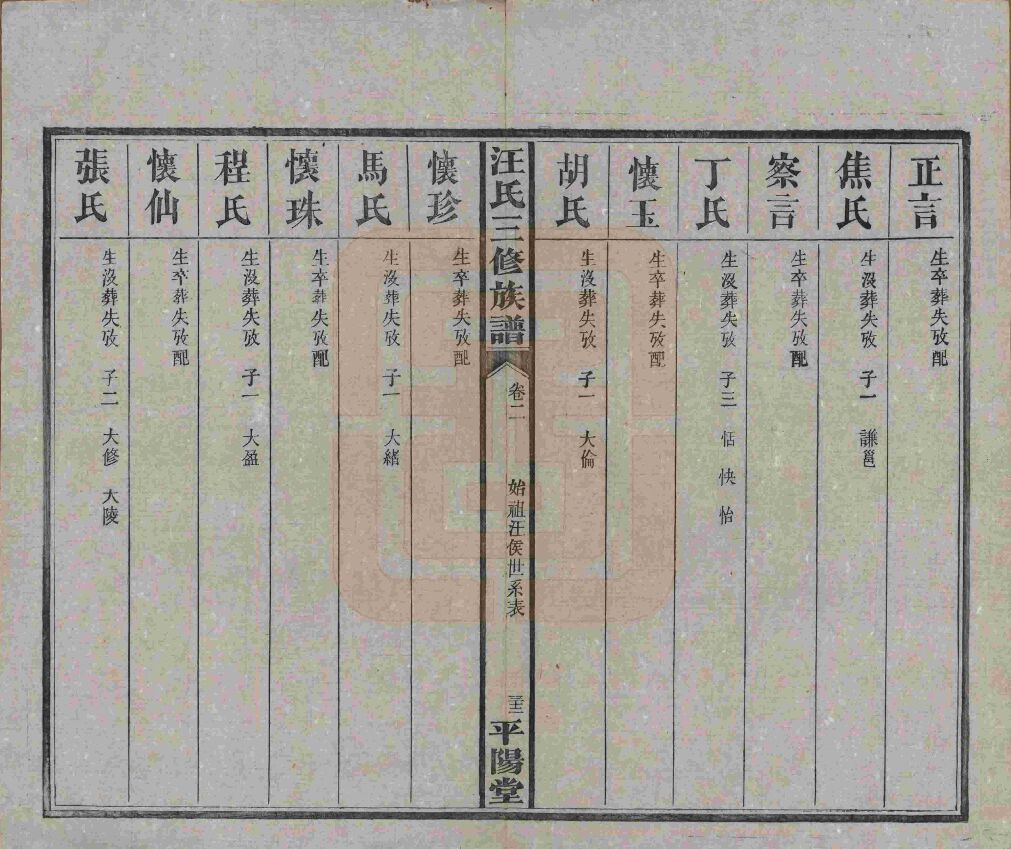 正言
生卒葬失攷配
焦氏
生沒葬失攷 子一 謙邕
察言
生卒葬失攷配
丁氏
生沒葬失攷 子三 恬 快 怡
懷玉
生卒葬失攷配
胡氏
生沒葬失攷 子一 大倫
汪氏三修族譜 卷二 始祖汪侯世系表 平陽堂
懷珍
生卒葬失攷配
馬氏
生沒葬失攷 子一 大緒
懷珠
生卒葬失攷配
程氏
生沒葬失攷 子一 大盈
懷仙
生卒葬失攷配
張氏
生沒葬失攷 子二 大修 大陵